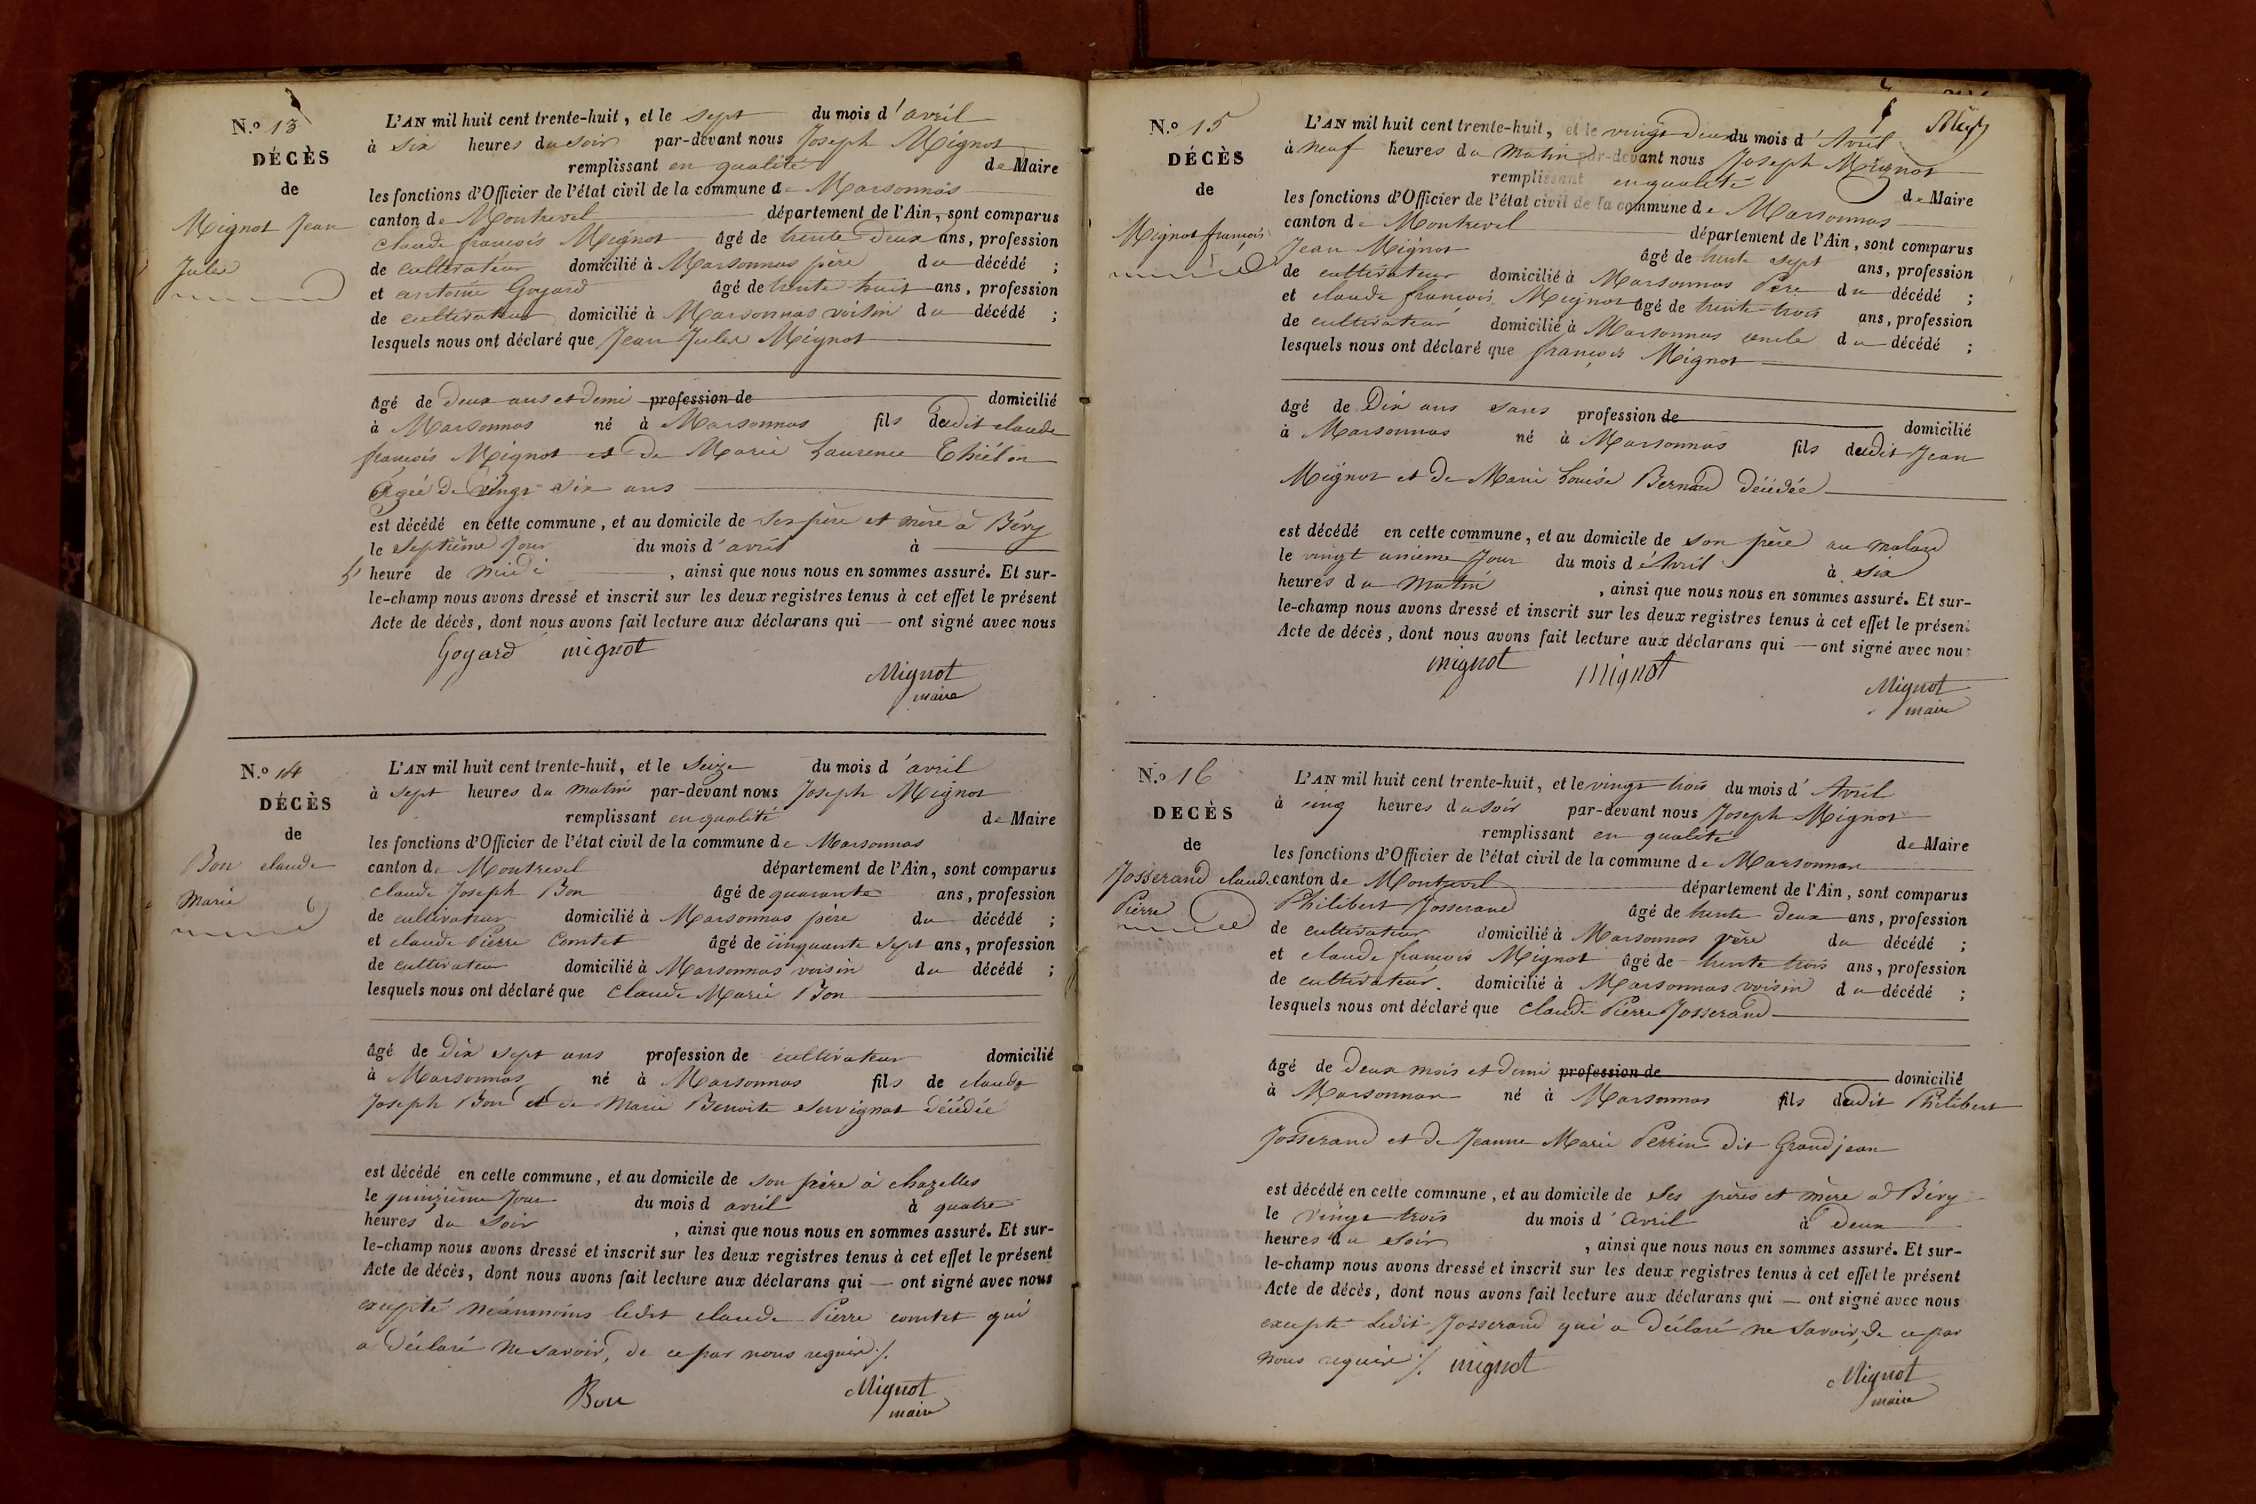 N.o 13
DÉCÈS
de
Mignot Jean
Jules
L'AN mil huit cent trente-huit, et le sept du mois d'avril
à six heures du soir par-devant nous Joseph Mignot
remplissant en qualité de Maire
les fonctions d'Officier de l'état civil de la commune de Marsonnas
canton de Montrevel département de l'Ain, sont comparus
claude françois Mignot âgé de trente deux ans, profession
de cultivateur domicilié à Marsonnas père du décédé ;
et antoine Goyard âgé de trente huit ans, profession
de cultivateur domicilié à Marsonnas voisin du décédé ;
lesquels nous ont déclaré que Jean Jules Mignot
âgé de deux ans et demi profession de domicilié
à Marsonnas né à Marsonnas fils dudit claude
françois Mignot et de Marie Laurence Thiébon
Agée de vingt six ans
est décédé en cette commune, et au domicile de ses père et mère à Béry
le septième jour du mois d'avril à
heure de midi , ainsi que nous nous en sommes assuré. Et sur-
le-champ nous avons dressé et inscrit sur les deux registres tenus à cet effet le présent
Acte de décès, dont nous avons fait lecture aux déclarans qui — ont signé avec nous
Goyard mignot
Mignot
maire
N.o 14
DÉCÈS
de
Bon claude
Marie
L'AN mil huit cent trente-huit, et le seize du mois d'avril
à sept heures du matin par-devant nous Joseph Mignot
remplissant en qualité de Maire
les fonctions d'Officier de l'état civil de la commune de Marsonnas
canton de Montrevel département de l'Ain, sont comparus
claude Joseph Bon âgé de quarante ans, profession
de cultivateur domicilié à Marsonnas père du décédé ;
et claude Pierre Comtet âgé de cinquante sept ans, profession
de cultivateur domicilié à Marsonnas voisin du décédé ;
lesquels nous ont déclaré que claude Marie Bon
âgé de dix sept ans profession de cultivateur domicilié
à Marsonnas né à Marsonnas fils de claude
Joseph Bon et de Marie Benoite servignat décédée
est décédé en cette commune, et au domicile de son père à chazelles
le quinzième jour du mois d avril à quatre
heures du soir , ainsi que nous nous en sommes assuré. Et sur-
le-champ nous avons dressé et inscrit sur les deux registres tenus à cet effet le présent
Acte de décès, dont nous avons fait lecture aux déclarans qui — ont signé avec nous
excepté néanmoins ledit claude Pierre comtet qui
a déclaré ne savoir, de ce par nous requis ./.
Bon Mignot
maire
N.o 15
DÉCÈS
de
Mignot françois
L'AN mil huit cent trente-huit, et le vingt deux du mois d'Avril
à neuf heures du matin par-devant nous Joseph Mignot
remplissant en qualité de Maire
les fonctions d'Officier de l'état civil de la commune de Marsonnas
canton de Montrevel département de l'Ain, sont comparus
Jean Mignot âgé de trente sept ans, profession
de cultivateur domicilié à Marsonnas Père du décédé ;
et claude françois Mignot âgé de trente trois ans, profession
de cultivateur domicilié à Marsonnas oncle du décédé ;
lesquels nous ont déclaré que françois Mignot
âgé de Dix ans sans profession de domicilié
à Marsonnas né à Marsonnas fils dudit Jean
Mignot et de Marie Louise Bernard décédée
est décédé en cette commune, et au domicile de son père au malard
le vingt unième jour du mois d'Avril à six
heures du matin , ainsi que nous nous en sommes assuré. Et sur-
le-champ nous avons dressé et inscrit sur les deux registres tenus à cet effet le présent
Acte de décès, dont nous avons fait lecture aux déclarans qui — ont signé avec nous
mignot mignot
Mignot
maire
N.o 16
DÉCÈS
de
Josserand claude
Pierre
L'AN mil huit cent trente-huit, et le vingt trois du mois d'Avril
à cinq heures du soir par-devant nous Joseph Mignot
remplissant en qualité de Maire
les fonctions d'Officier de l'état civil de la commune de Marsonnas
canton de Montrevel département de l'Ain, sont comparus
Philibert Josserand âgé de trente deux ans, profession
de cultivateur domicilié à Marsonnas père du décédé ;
et claude françois Mignot âgé de trente trois ans, profession
de cultivateur domicilié à Marsonnas voisin du décédé ;
lesquels nous ont déclaré que claude Pierre Josserand
âgé de deux mois et demi profession de domicilié
à Marsonnas né à Marsonnas fils dudit Philibert
Josserand et de Jeanne Marie Perrin dit Grandjean
est décédé en cette commune, et au domicile de ses pères et mère à Béry
le vingt trois du mois d'avril à deux
heures du soir , ainsi que nous nous en sommes assuré. Et sur-
le-champ nous avons dressé et inscrit sur les deux registres tenus à cet effet le présent
Acte de décès, dont nous avons fait lecture aux déclarans qui — ont signé avec nous
excepté ledit Josserand qui a déclaré ne savoir, de ce par
nous requis ./. mignot
Mignot
maire